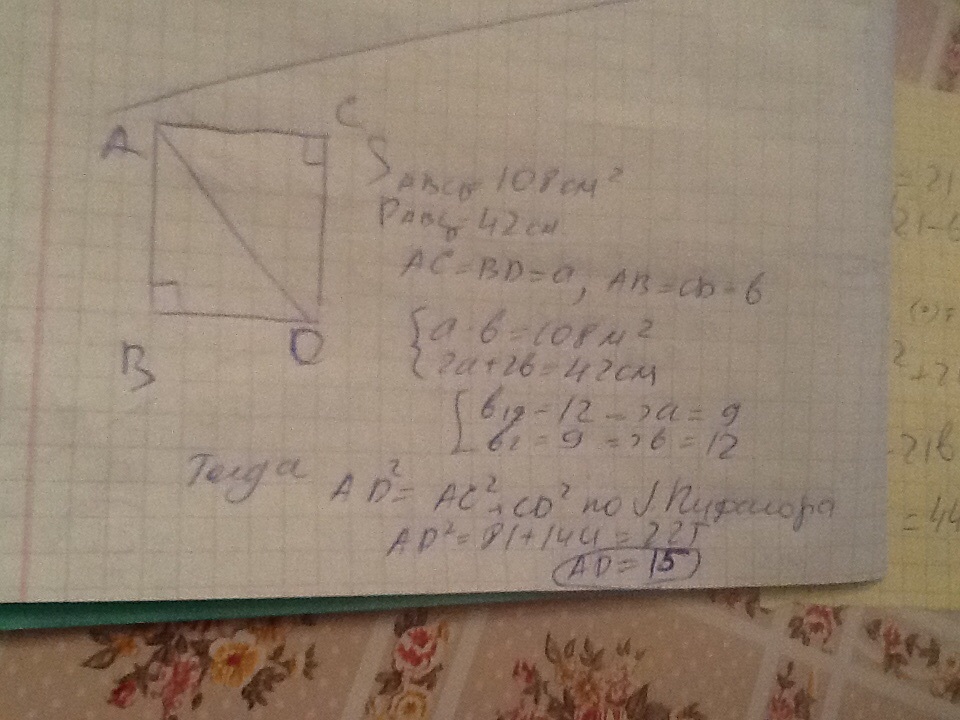 A
C
B
D
S ABCD = 108 см²
P ABCD = 42 см
AC = BD = a, AB = CD = b
a · b = 108 м²
2a + 2b = 42 см
b₁ = 12 => a = 9
b₂ = 9 => b = 12
Тогда AD² = AC² + CD² по т. Пифагора
AD² = 81 + 144 = 225
AD = 15
= 21
21 - b
21b
= 44